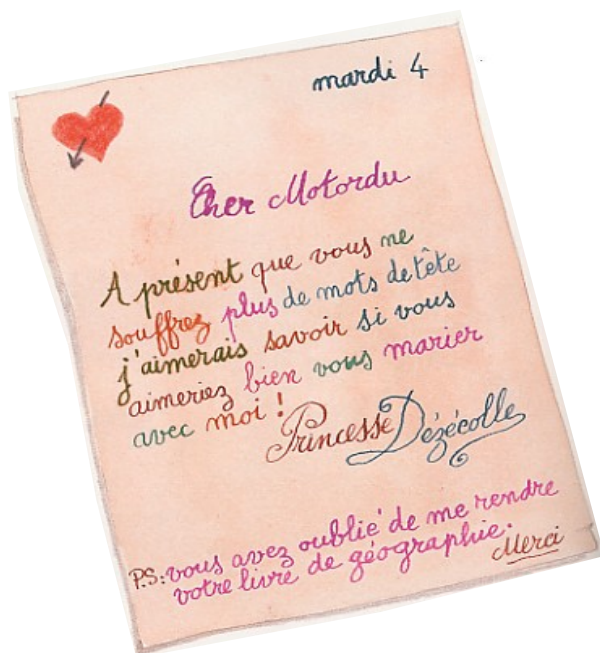 mardi 4
Cher Motordu
A présent que vous ne
souffrez plus de mots de tête
j'aimerais savoir si vous
aimeriez bien vous marier
avec moi !
Princesse Dézécolle
P.S: vous avez oublié de me rendre
votre livre de géographie.
Merci